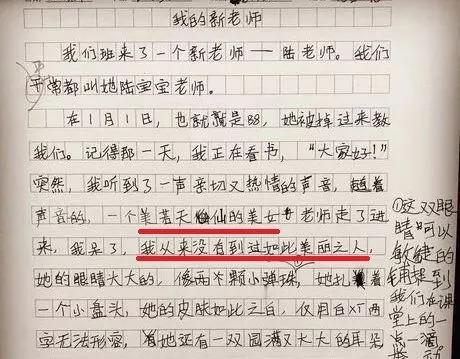 我的新老师
我们班来了一个新老师——陆老师。我们
平常都叫她陆宝宝老师。
在1月1日,也就是88,她被掉过来教
我们。记得那一天,我正在看书,“大家好!”
突然,我听到了一声亲切又热情的声音,趁着
声音的,一个美若天仙的美女老师走了进
来,我呆了,我从来没有到过如此美丽之人,
她的眼睛大大的,像两个颗小弹珠,她扎着
一个小盘头,她的皮肤如此之白,仅用白雪两
字无法形容,她还有一双圆满又大大的耳朵
①这双眼
睛可以
敏健的
捕捉到
我们在课
堂上的一
点一滴